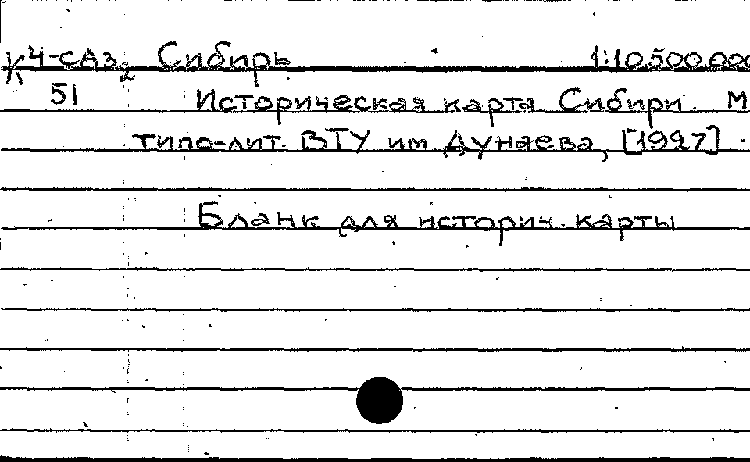 К 4-сАз₂ Сибирь 1:10.500.000
51 Историческая карта Сибири. М
типо-лит. ВТУ им Дунаева, [1927]
Бланк для историч. карты